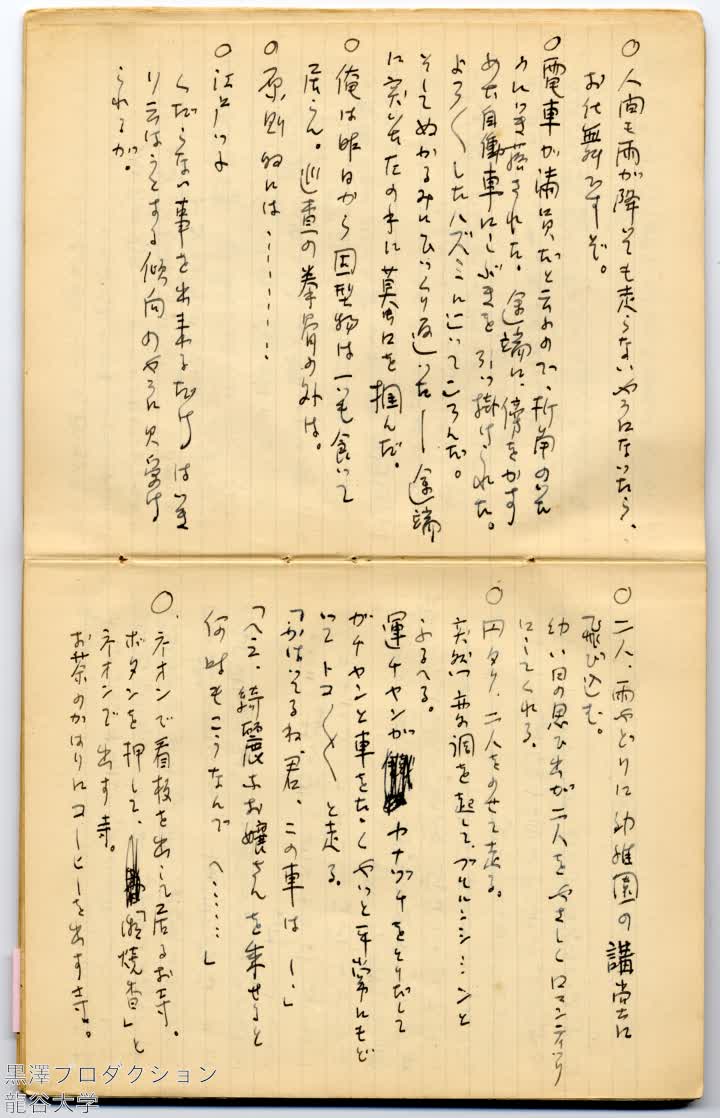 ○人間も雨が降っても走らないやうになったら、
お仕舞ですぞ。
○電車が満員だと云ふので、折角のった
のにいき落された。途端に、傍をかす
めた自働車にしぶきを引っ掛けられた。
よろ〱したハズミに泣いてころんだ。
そしてぬかるみにひっくり返った――途端
に突いた左の手に蟇口を掴んだ。
○俺は昨日から固型物は一つも食って
居らん。巡査の拳骨の外は。
○原則的には…………
○江戸ッ子
くだらない事を出来るだけはっき
り云はうとする傾向のやうに見受け
られるが。
○二人、雨やどりに幼稚園の講堂に
飛び込む。
幼い日の思ひ出が二人をやさしくロマンティック
にしてくれる。
○円タク、二人をのせて走る。
突然、変調を起して、ブルルンシンシンと
ふるへる。
運チャンがカナヅチをとりだして
ガチャンと車をたゝくやっと平常にもど
って トコ〱〱と走る。
「かはってるね、君、この車は――」
「へえ、綺麗なお嬢さんを乗せると
何時もこうなんで へ……」
○ネオンで看板を出して居るお寺。
ボタンを押して、「御焼香」と
ネオンで出す寺。
お茶のかはりにコーヒーを出す寺。
黒澤プロダクション
龍谷大学